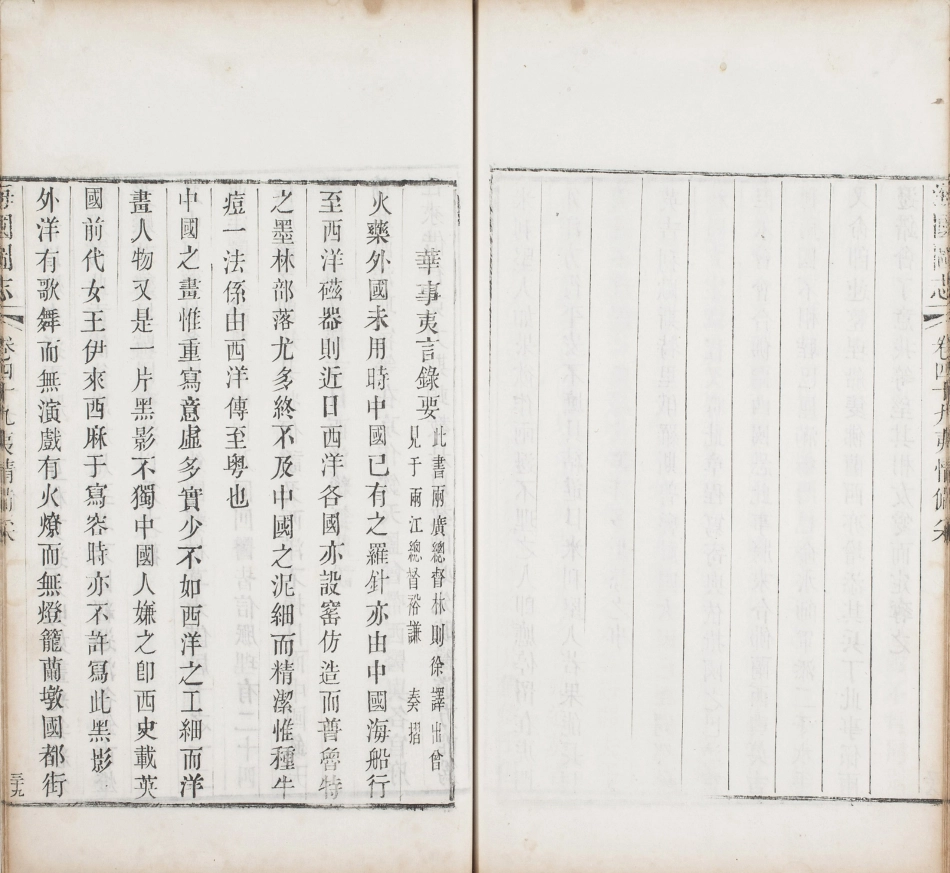 海國圖志
華事夷言錄要
此書兩廣總督林則徐譯出曾
見于兩江總督裕謙 奏摺
火藥外國未用時中國已有之羅針亦由中國海船行
至西洋磁器則近日西洋各國亦設窰仿造而普魯特
之墨林部落尤多終不及中國之泥細而精潔惟種牛
痘一法係由西洋傳至粵也
中國之畫惟重寫意虛多實少不如西洋之工細而洋
畫人物又是一片黑影不獨中國人嫌之卽西史載英
國前代女王伊來西麻于寫容時亦不許寫此黑影
外洋有歌舞而無演戲有火燎而無燈籠蘭墩國都街
海國圖志
卷四十九夷情備采